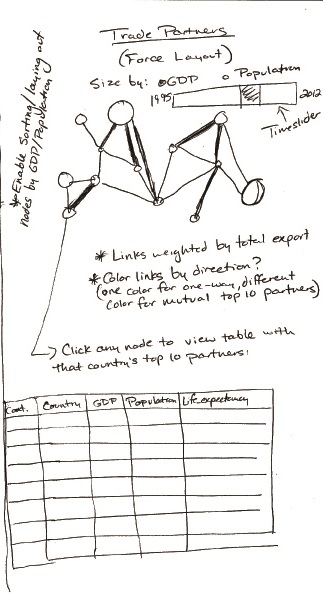 Trade Partners
(Force Layout)
Size by: GDP Population
1995 2012
Timeslider
* Enable Sorting/laying out
nodes by GDP/Population
* Links weighted by total export
* Color links by direction?
(one color for one-way, different
color for mutual top 10 partners)
Click any node to view table with
that country's top 10 partners:
Cont. Country GDP Population Life expectancy